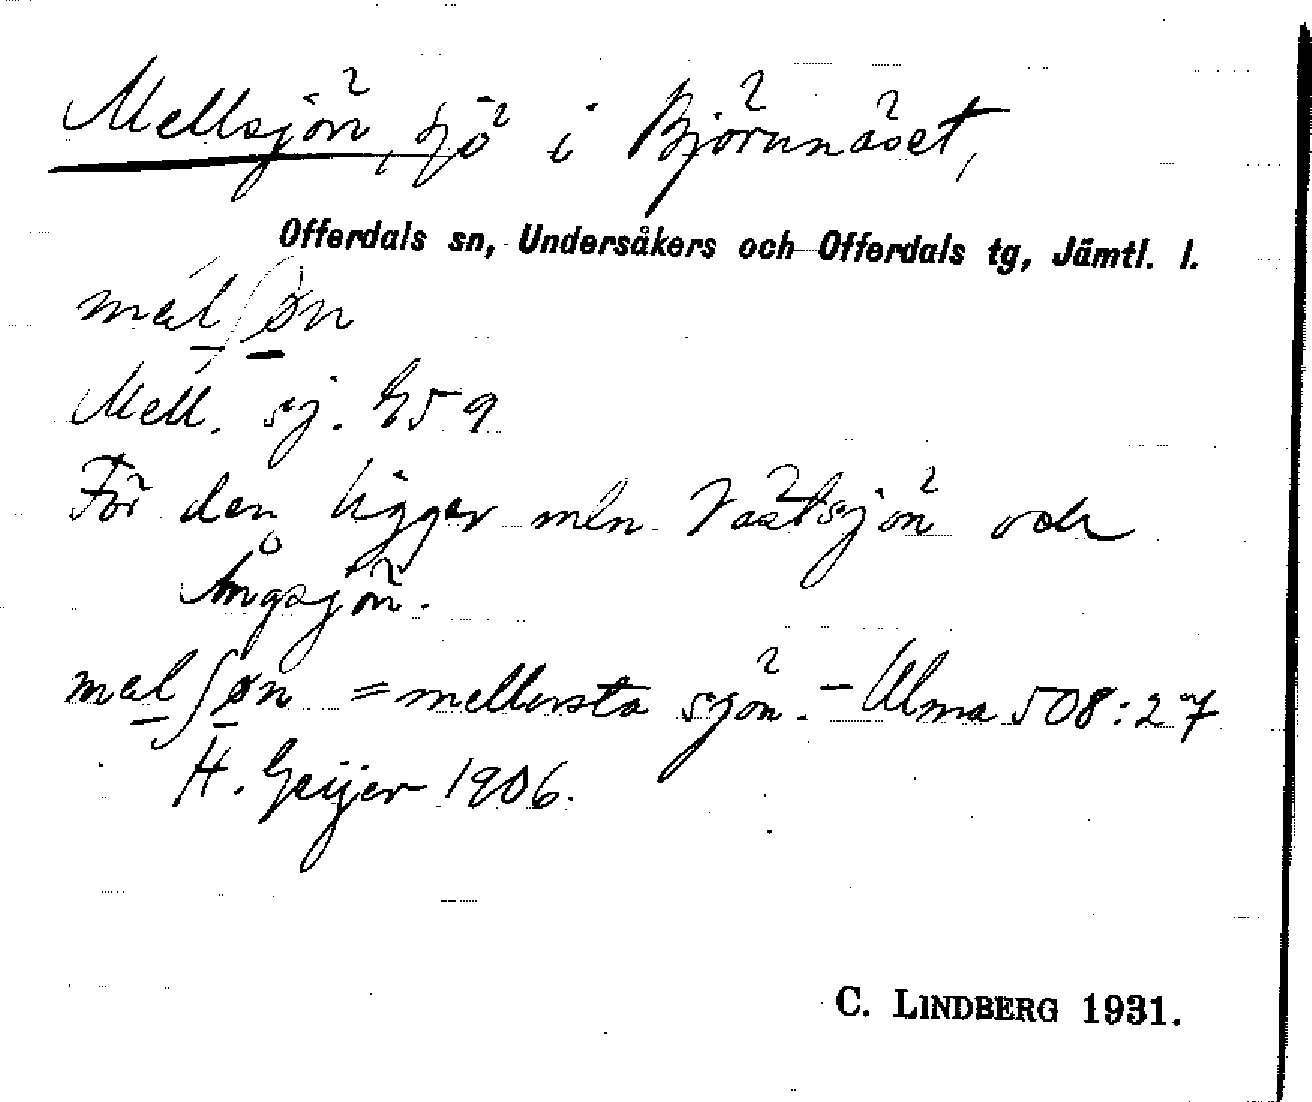 Mellsjön, sjö i Björnnäset,
Offerdals sn, Undersåkers och Offerdals tg, Jämtl. l.
mælʃøn
Mell. sj. G 59
För den ligger mln Västsjön och
Ångsjön.
mælʃøn = mellersta sjön. – Ulma 508:27
H. Geijer 1906.
C. LINDBERG 1931.